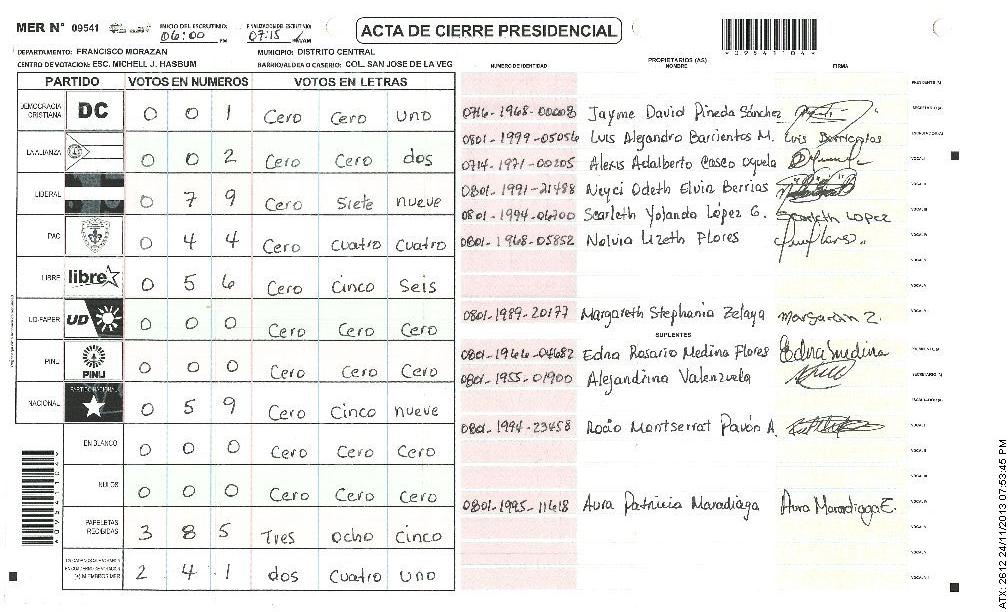 MER N° 09541 INICIO DEL ESCRUTINIO: 06:00 PM FINALIZACION DEL ESCRUTINIO: 07:15 AM
ACTA DE CIERRE PRESIDENCIAL
*09541104*
DEPARTAMENTO: FRANCISCO MORAZAN MUNICIPIO: DISTRITO CENTRAL
CENTRO DE VOTACION: ESC. MICHELL J. HASBUM BARRIO/ALDEA O CASERIO: COL. SAN JOSE DE LA VEG
PARTIDO VOTOS EN NUMEROS VOTOS EN LETRAS
DEMOCRACIA CRISTIANA DC 0 0 1 Cero Cero uno
LA ALIANZA 0 0 2 Cero Cero dos
LIBERAL 0 7 9 Cero Siete nueve
PAC 0 4 4 Cero cuatro cuatro
LIBRE libre 0 5 6 Cero Cinco Seis
UD-FAPER UD 0 0 0 Cero Cero Cero
PINU PINU 0 0 0 Cero Cero Cero
NACIONAL PARTIDO NACIONAL 0 5 9 Cero Cinco nueve
EN BLANCO 0 0 0 Cero Cero Cero
NULOS 0 0 0 Cero Cero Cero
PAPELETAS RECIBIDAS 3 8 5 Tres ocho cinco
(+) MIEMBROS MER 2 4 1 dos cuatro uno
NUMERO DE IDENTIDAD PROPIETARIOS (AS) NOMBRE FIRMA
PRESIDENTE (A)
0716-1968-00008 Jayme David Pineda Sánchez SECRETARIO (A)
0801-1999-05056 Luis Alejandro Barrientos M. Luis Barrientos ESCRUTADOR (A)
0714-1971-00205 Alexis Adalberto Casco oquela VOCAL I
0801-1991-21488 Neyci Odeth Elvir Berrios VOCAL II
0801-1994-06700 Scarleth Yolando López G. Scarleth Lopez VOCAL III
0801-1968-05852 Nelvia Lizeth Flores VOCAL IV
VOCAL V
VOCAL VI
0801-1989-20177 Margareth Stephania Zelaya VOCAL VII
SUPLENTES
0801-1966-04682 Edna Rosario Medina Flores Edna medina PRESIDENTE (A)
0801-1955-01900 Alejandrina Valenzuela SECRETARIO (A)
ESCRUTADOR (A)
0801-1994-23458 Rocio Montserrat Pavón A. VOCAL I
VOCAL II
VOCAL III
0801-1995-11618 Aura Patricia Maradiaga Aura Maradiaga E. VOCAL IV
VOCAL V
VOCAL VI
VOCAL VII
*09541104*
ATX: 2612 24/11/2013 07:53:45 PM